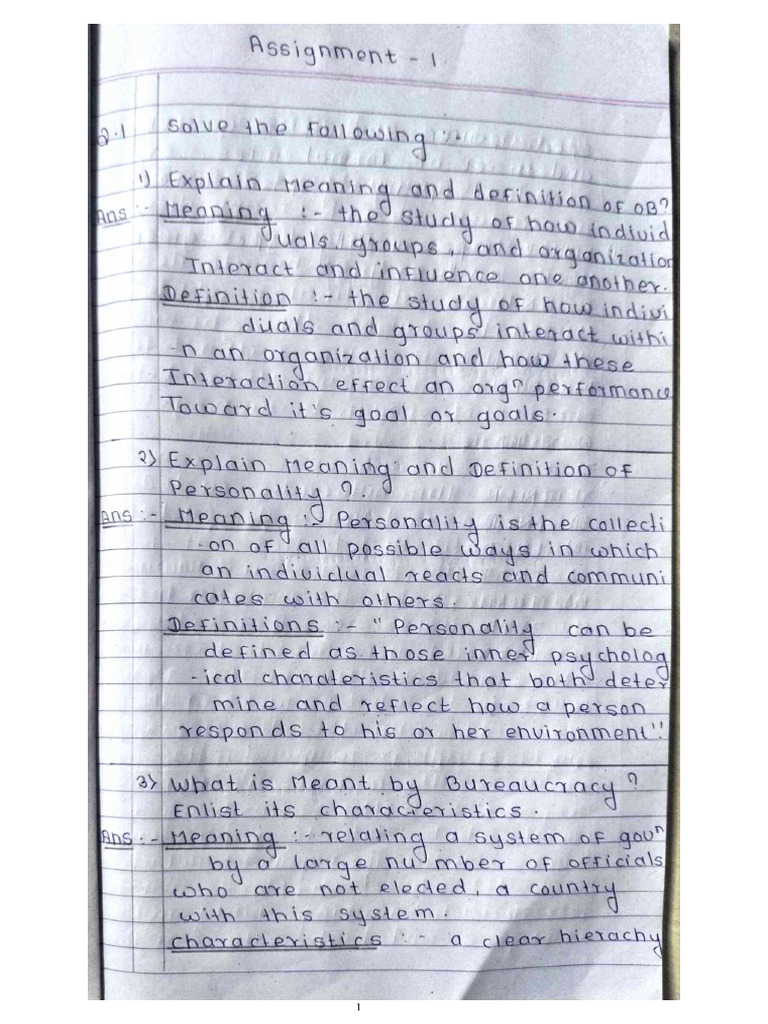 Assignment - 1.
Q.1 Solve the Following :-
1) Explain Meaning and definition of OB?
Ans :- Meaning :- the study of how individ
uals, groups, and organization
Interact and influence one another.
Definition :- the study of how indivi
duals and groups interact withi
-n an organization and how these
Interaction effect an orgn performance
Toward it's goal or goals.
2) Explain Meaning and Definition of
Personality ?.
Ans :- Meaning :- Personality is the collecti
-on of all possible ways in which
an individual reacts and communi
cates with others.
Definitions :- "Personality can be
defined as those inner psycholog
-ical charateristics that both deter
mine and reflect how a person
responds to his or her environment".
3) What is Meant by Bureaucracy ?
Enlist its characteristics.
Ans :- Meaning :- relating a system of govn
by a large number of officials
who are not eleded, a country
with this system.
characteristics :- a clear hierachy
1